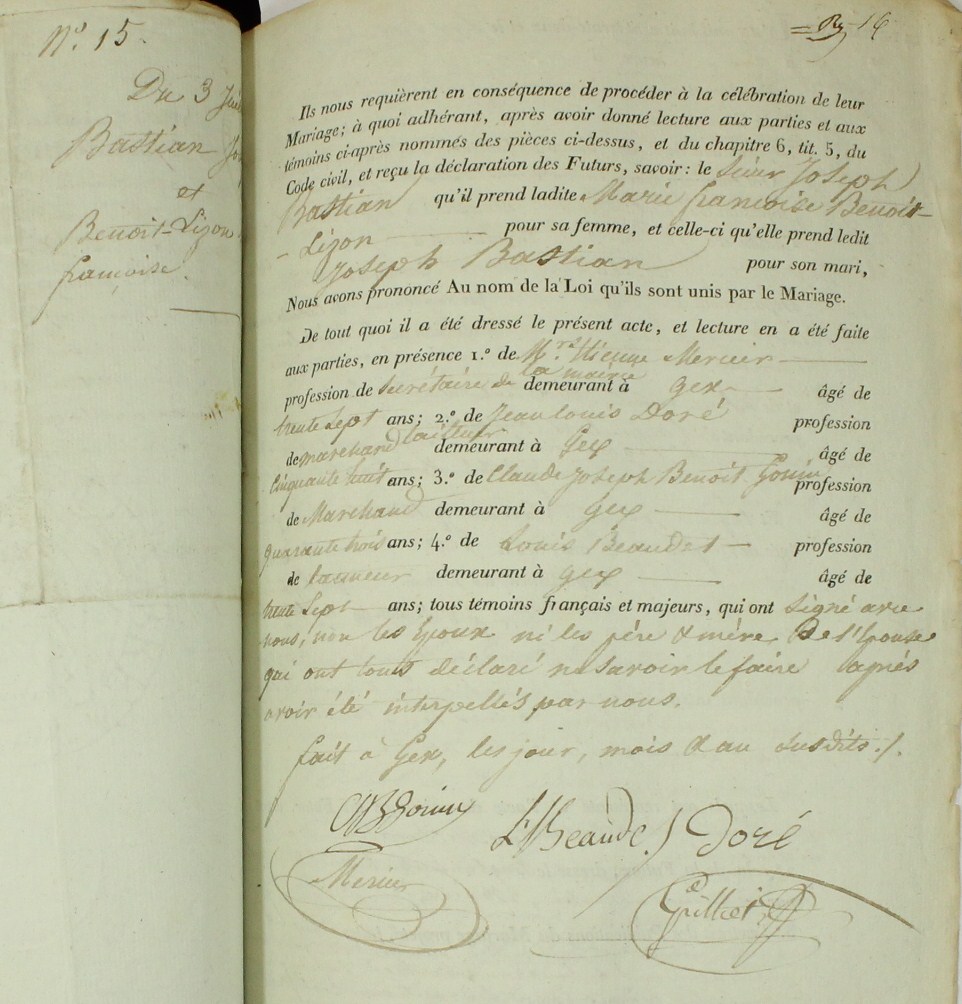 N.o 15.
Du 3
Bastian
et
Benoit-Lizon
françoise.
Ils nous requièrent en conséquence de procéder à la célébration de leur
Mariage; à quoi adhérant, après avoir donné lecture aux parties et aux
témoins ci-après nommés des pièces ci-dessus, et du chapitre 6, tit. 5, du
Code civil, et reçu la déclaration des Futurs, savoir: le Sieur Joseph
Bastian qu'il prend ladite Marie françoise Benoit-
-Lizon pour sa femme, et celle-ci qu'elle prend ledit
Joseph Bastian pour son mari,
Nous avons prononcé Au nom de la Loi qu'ils sont unis par le Mariage.
De tout quoi il a été dressé le présent acte, et lecture en a été faite
aux parties, en présence 1.o de M.rs Etienne Mercier
profession de Secrétaire de la mairie demeurant à Gex âgé de
trente Sept ans; 2.o de Jean louis Doré profession
de marchand tailleur demeurant à Gex âgé de
Cinquante huit ans; 3.o de Claude Joseph Benoit Gonin profession
de Marchand demeurant à Gex âgé de
quarante trois ans; 4.o de Louis Beaudet profession
de tanneur demeurant à Gex âgé de
trente Sept ans; tous témoins français et majeurs, qui ont signé avec
nous, non les Epoux ni les père & mère De l'Epouse
qui ont tous déclaré ne savoir le faire après
avoir été interpellés par nous.
fait à Gex, les jour, mois & an susdits ./.
Gonin
L's Beaudet Doré
Mercier